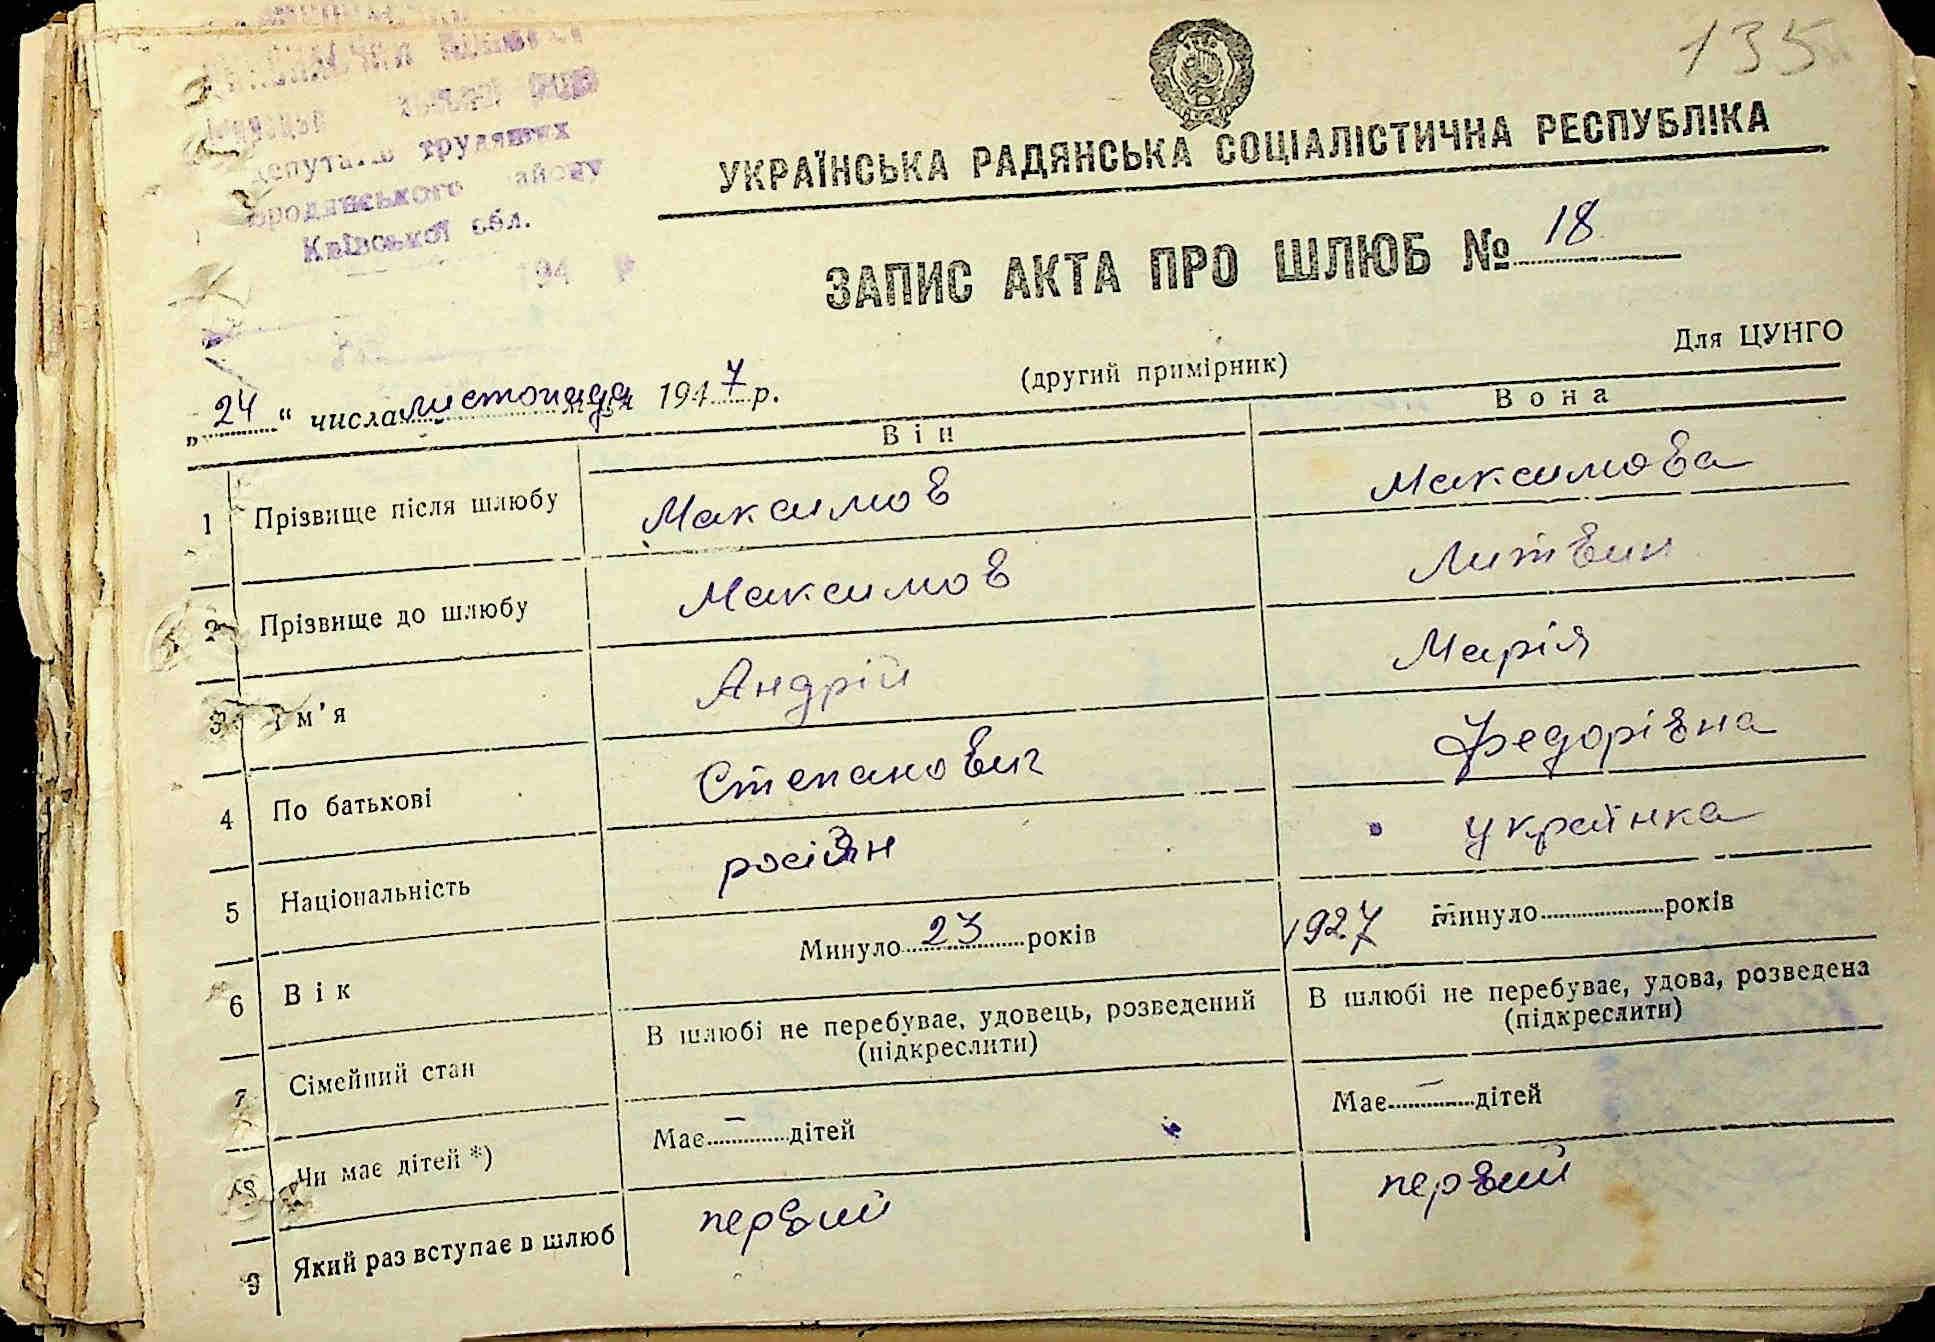 135
депутатів трудящих
Бородянського району
Київської обл.
194 р
УКРАЇНСЬКА РАДЯНСЬКА СОЦІАЛІСТИЧНА РЕСПУБЛІКА
ЗАПИС АКТА ПРО ШЛЮБ № 18
Для ЦУНГО
(другий примірник)
„24“ числа листопада м-ця 1947 р.
Він Вона
1 Прізвище після шлюбу Максимов Максимова
2 Прізвище до шлюбу Максимов Литвин
3 Ім'я Андрій Марія
4 По батькові Степанович Федорівна
5 Національність росіян українка
6 Вік Минуло 23 років 1927 Минуло років
7 Сімейний стан В шлюбі не перебуває, удовець, розведений В шлюбі не перебуває, удова, розведена
(підкреслити) (підкреслити)
8 Чи має дітей *) Має – дітей Має – дітей
9 Який раз вступає в шлюб первий первий